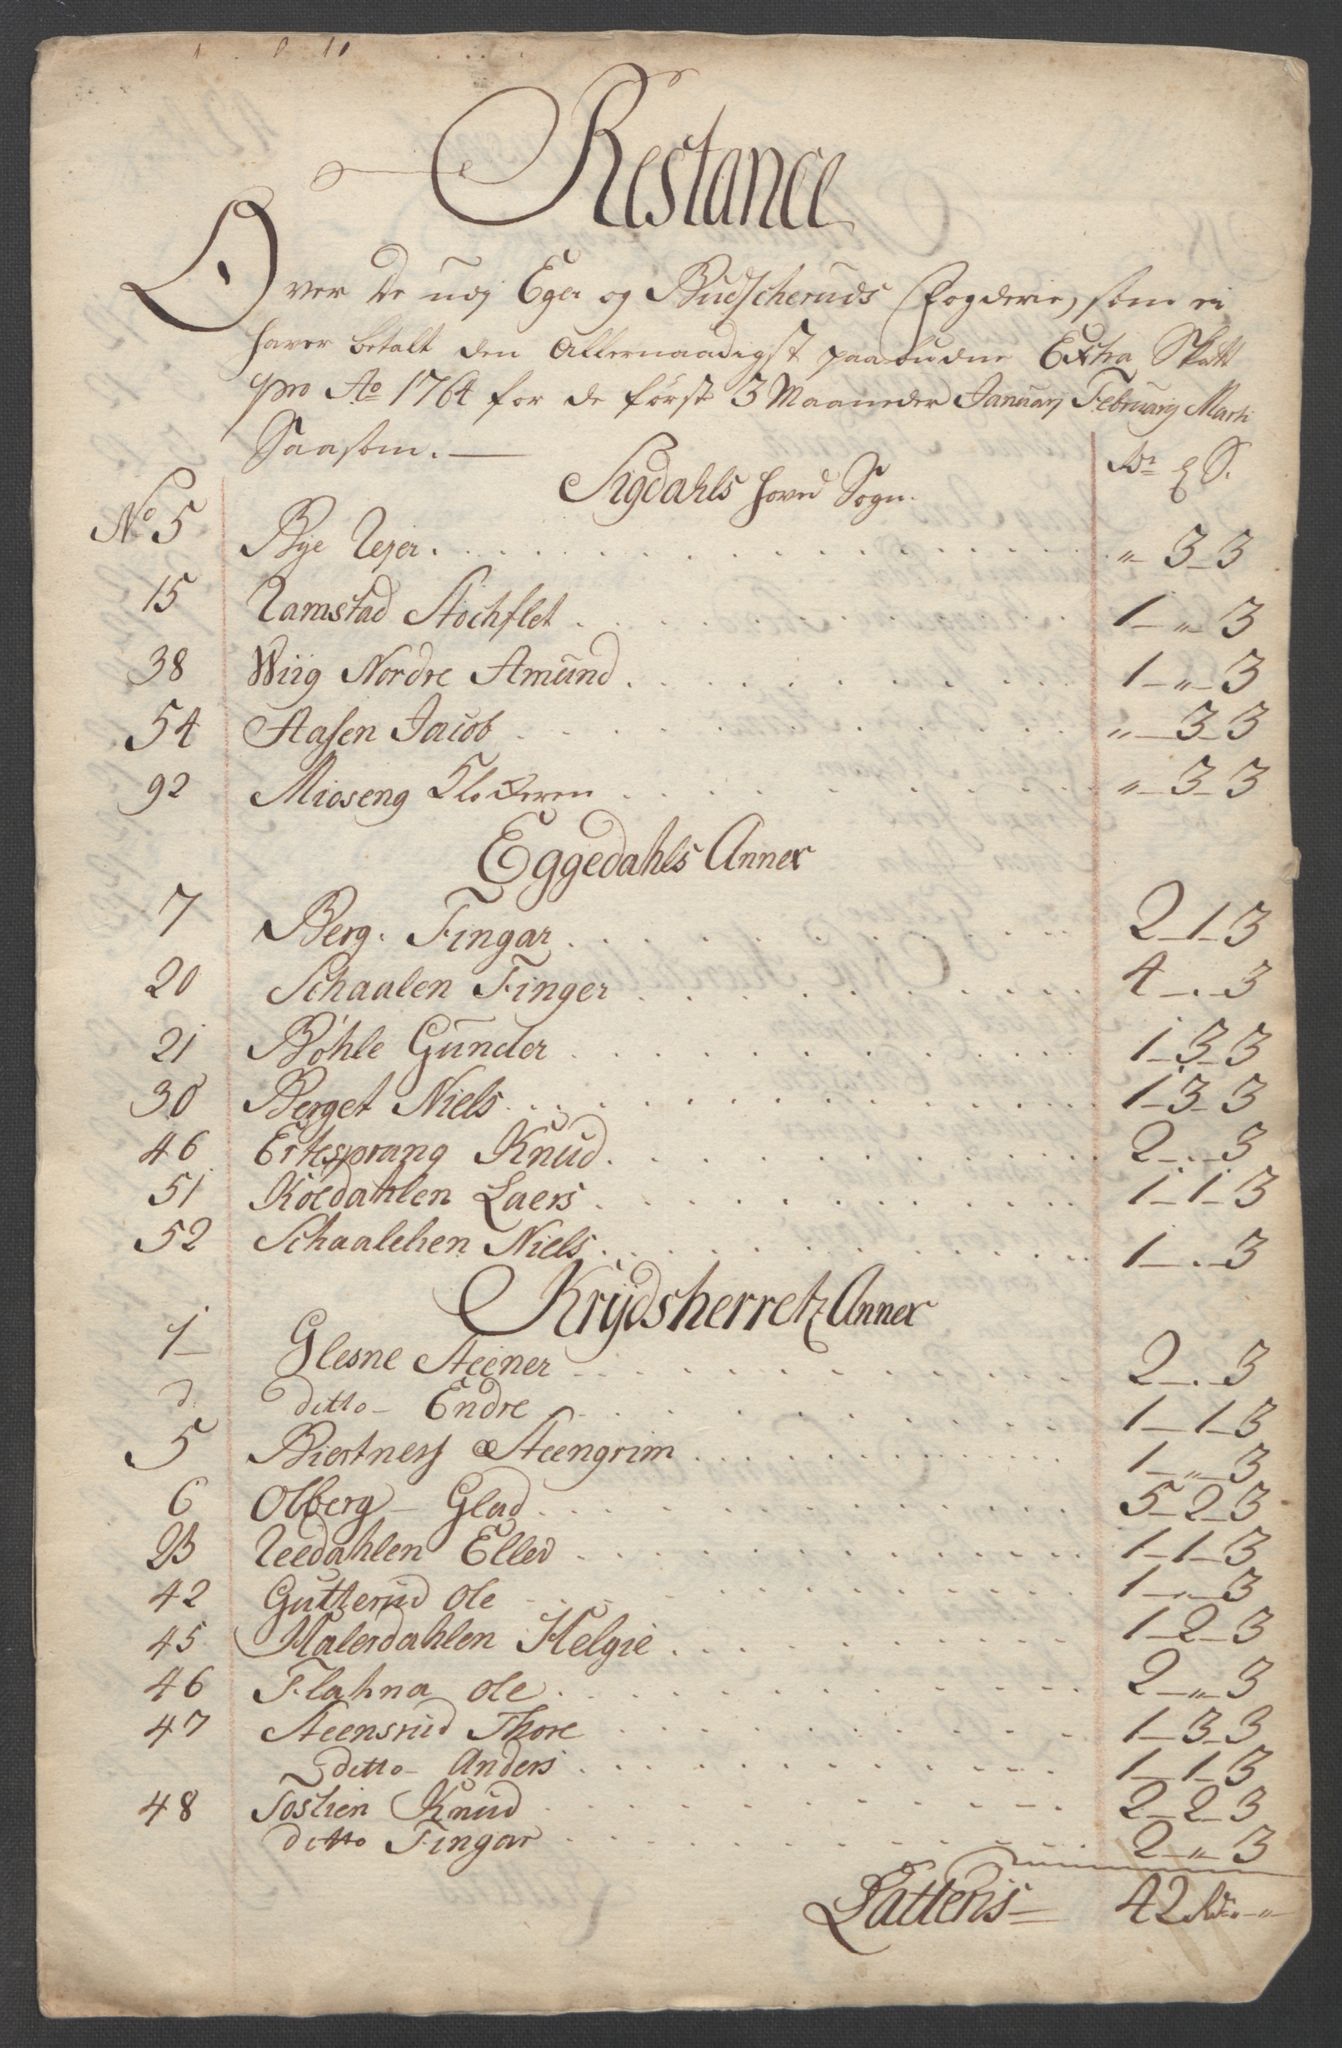 Restance
Over de udj Eger og Budscheruds Fogderie, som ei
haver betalt den Allernaadigst paabudne Extra Skatt
pro Ao 1764 for de først 3 Maaneder January February Marti
Saasom. —
Sigdahls hoved Sogn. Rdr ß S.
No 5 Bye Rejer. „ 3 - 3
15 Ramstad Stochflet 1 - „ - 3
38 Wiig Nordre Amund 1 - „ - 3
54 Aasen Jacob „ - 3 - 3
92 Mioseng Klockeren „ - 3 - 3
Eggedahls Annex
7 Berg. Fingar 2 - 1 - 3
20 Schaalen Finger 4 - . - 3
21 Bøhle Gunder 1 - 3 - 3
30 Berget Niels 1 - 3 - 3
46 Ertesprang Knud 2 - . - 3
51 Koldahlen Laers 1 - 1 - 3
52 Schaalehen Niels 1 - . - 3
Krydsherretz Annex
1 Glesne Steener 2 - . - 3
d. ditto - Endre 1 - 1 - 3
5 Biertness Steengrim 1 - „ - 3
6 Olberg - Glad 5 - 2 - 3
23 Reedahlen Elled 1 - 1 - 3
42 Gutterud Ole 1 - „ - 3
45 Malerdahlen Helgie 1 - 2 - 3
46 Flahna Ole 2 - „ - 3
47 Steensrud Thore 1 - 3 - 3
ditto - Anders 1 - 1 - 3
48 Toslien Knud 2 - 2 - 3
ditto Fingar 2 - „ - 3
Latteris = 42 Rdr. - „